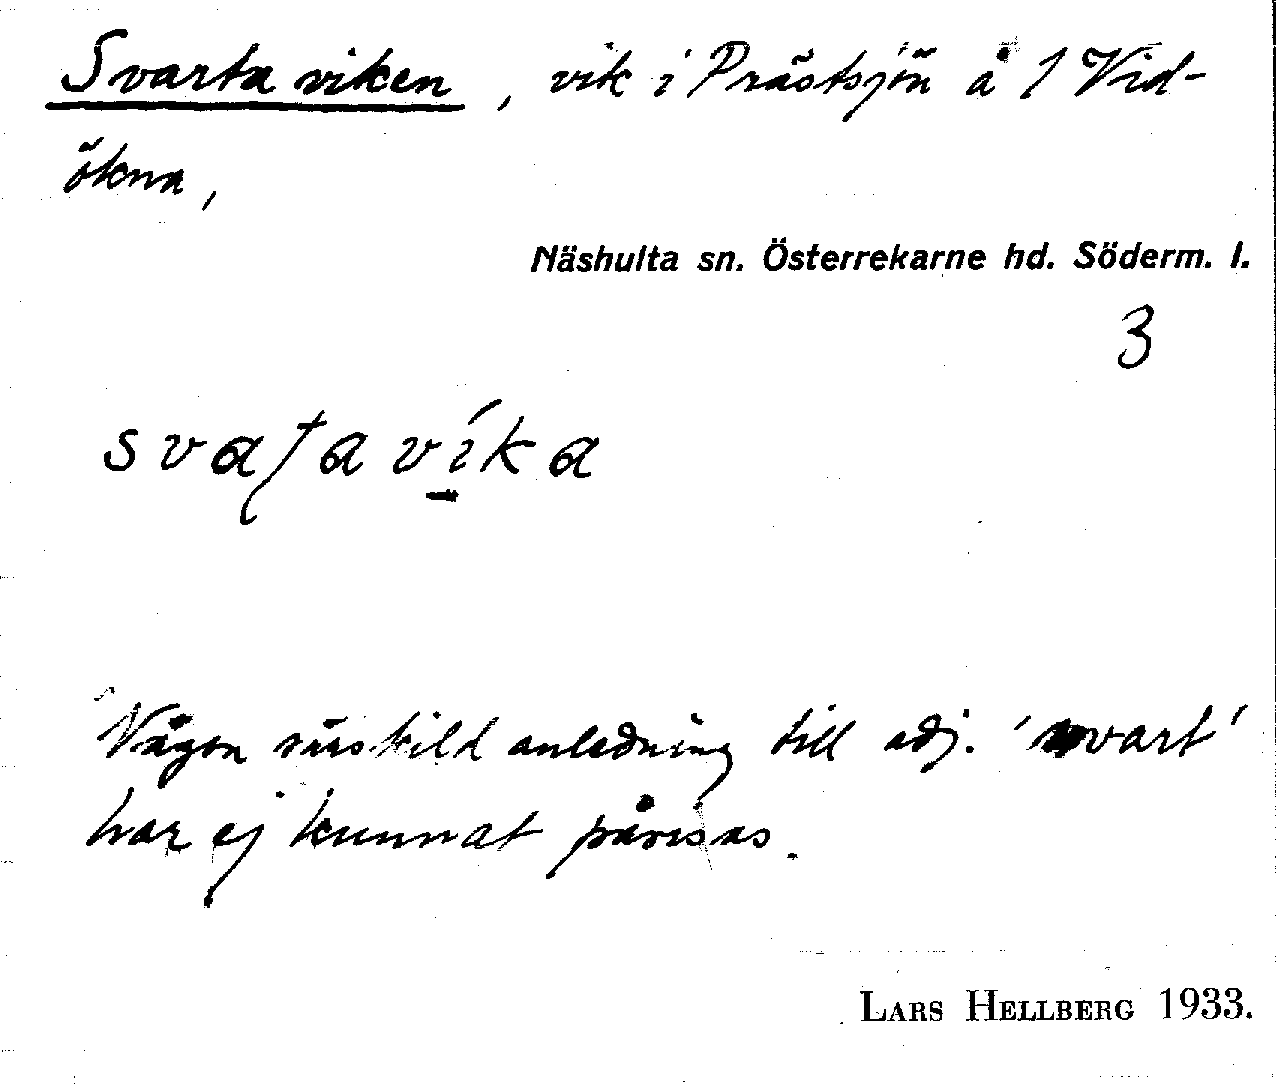 Svarta viken, vik i Prästsjön å 1 Vid-
ökna,
Näshulta sn. Österrekarne hd. Söderm. l.
3
Någon särskild anledning till adj. 'svart'
har ej kunnat påvisas.
LARS HELLBERG 1933.